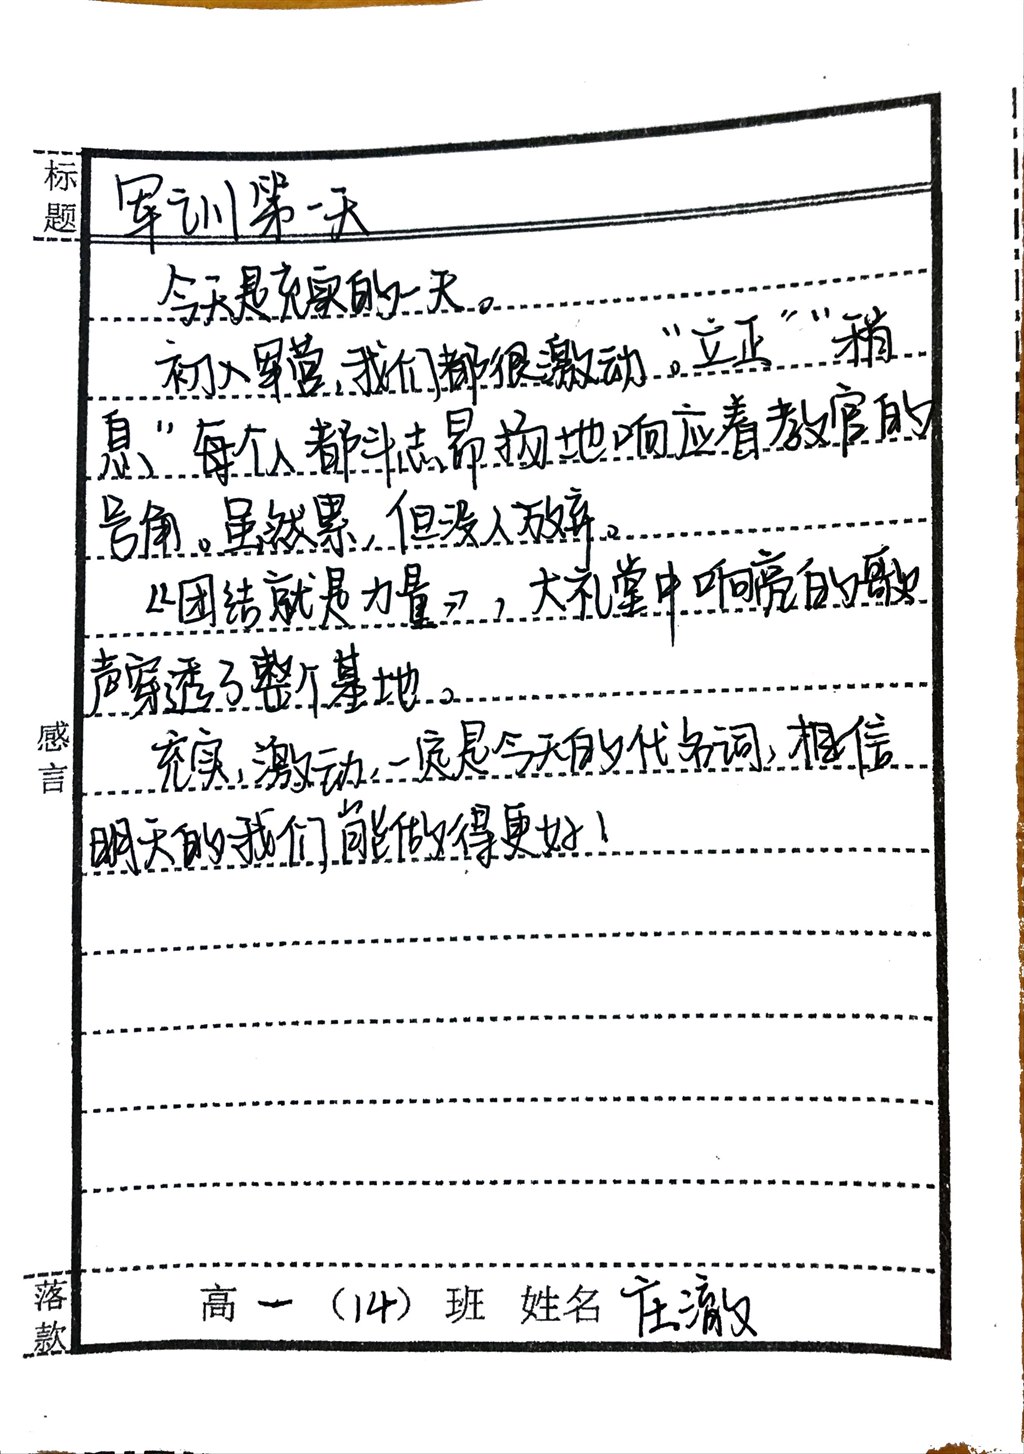 标题
军训第一天
今天是充实的一天。
初入军营，我们都很激动。“立正”“稍
息”每个人都斗志昂扬地响应着教官的
号角。虽然累，但没人放弃。
《团结就是力量》，大礼堂中响亮的歌
声穿透了整个基地。
感言
充实，激动，一定是今天的代名词，相信
明天的我们能做得更好！
落款
高一（14）班 姓名 庄澈